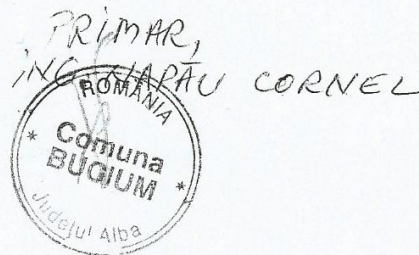 PRIMAR,
ING. NAPĂU CORNEL
ROMÂNIA
* Comuna *
BUCIUM
Județul Alba